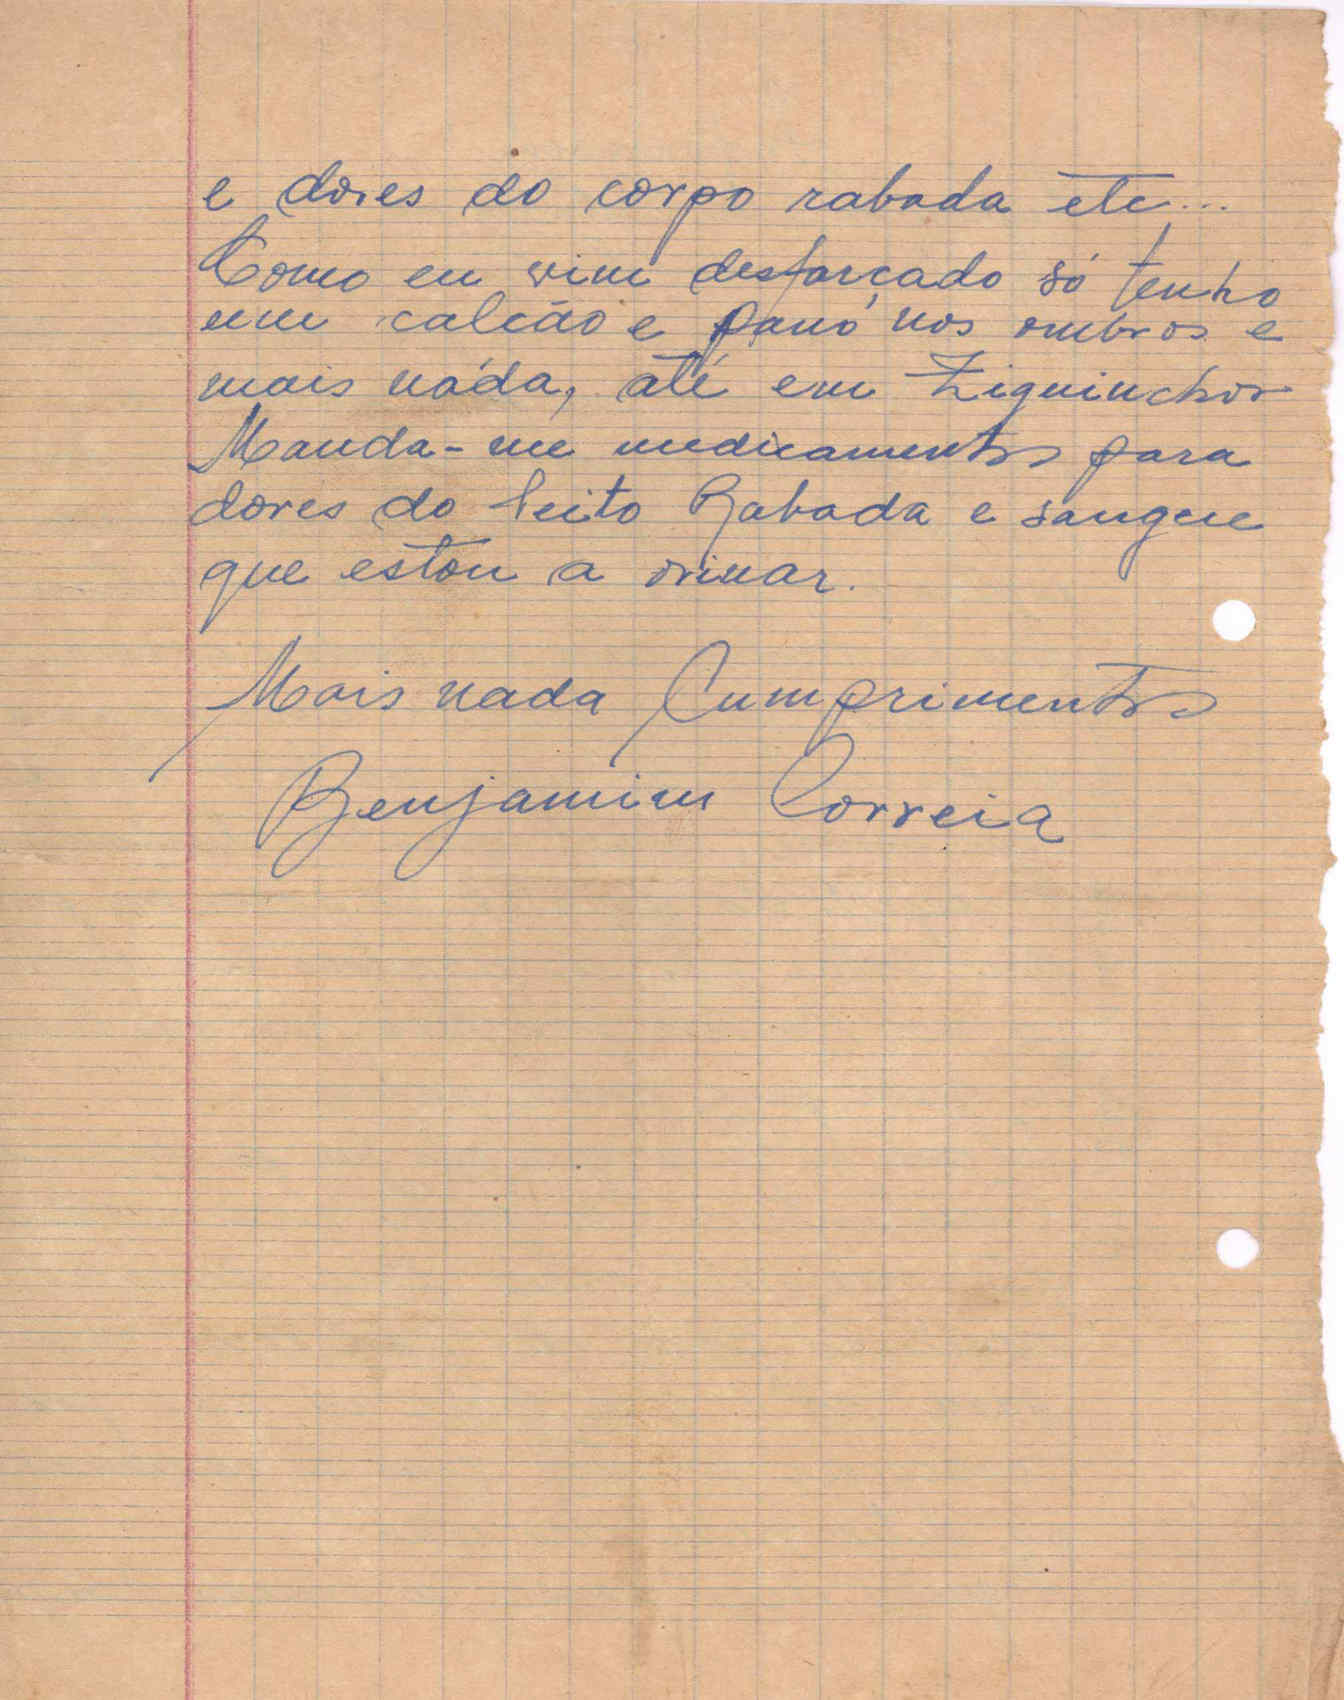 e dores do corpo rabada etc...
Como eu vim desfarçado só tenho
um calção e pano nos ombros e
mais náda, até em Ziguinchor
Manda-me medicamentos para
dores do Peito Rabada e sangue
que estou a orinar.
Mais nada Cumprimentos
Benjamim Correia